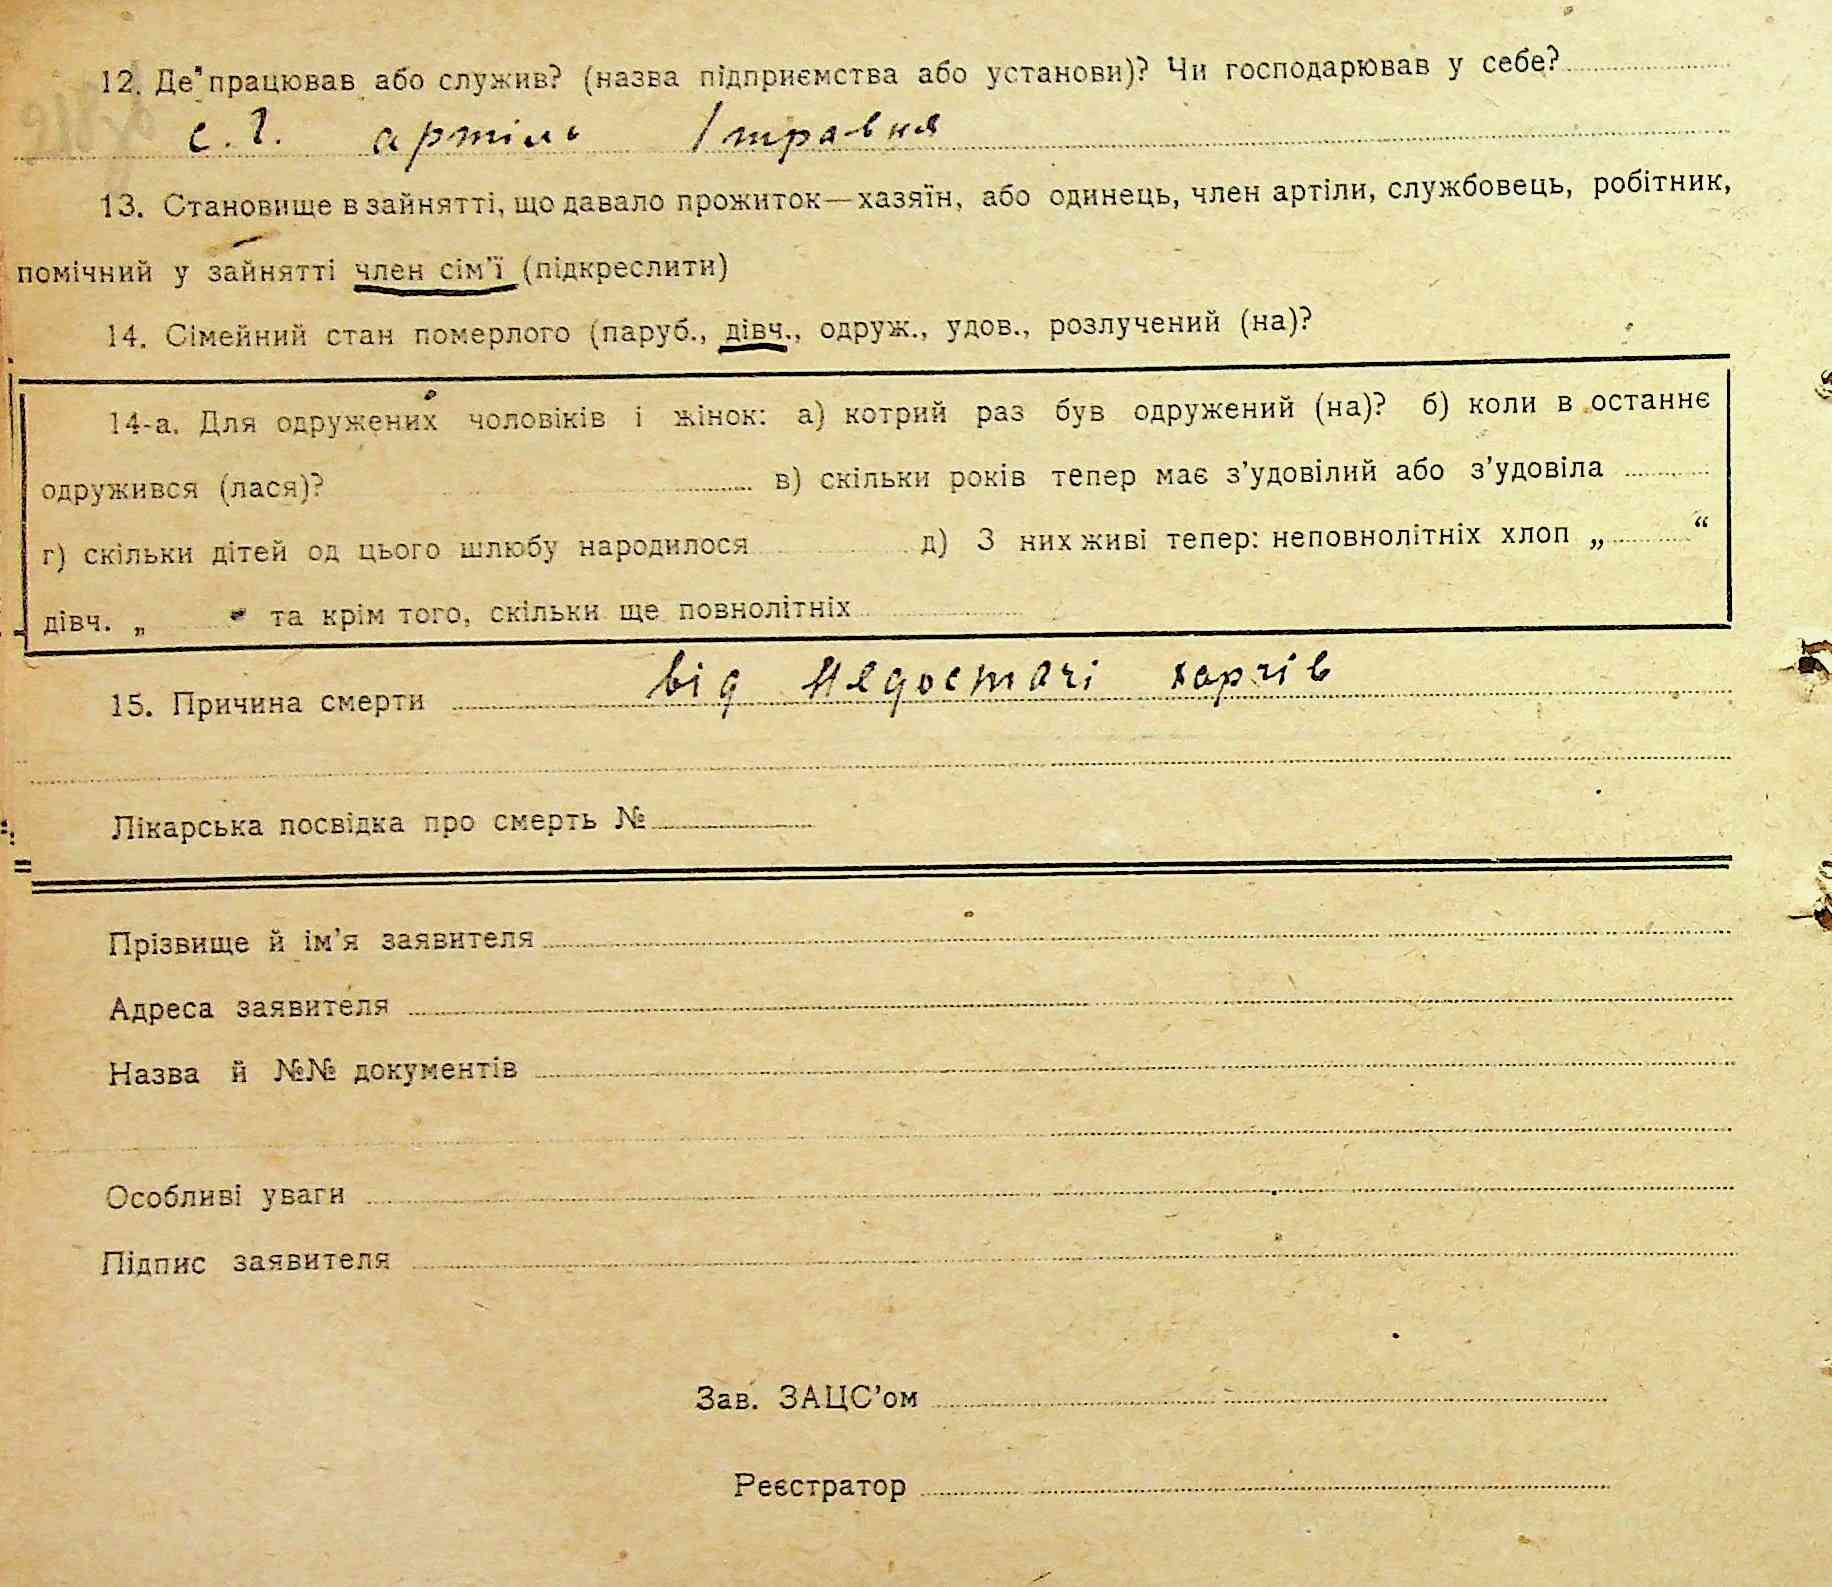 12. Де працював або служив? (назва підприємства або установи)? Чи господарював у себе?
с. г. артіль 1 травня
13. Становище в зайнятті, що давало прожиток—хазяїн, або одинець, член артіли, службовець, робітник,
помічний у зайнятті член сім'ї (підкреслити)
14. Сімейний стан померлого (паруб., дівч., одруж., удов., розлучений (на)?
14-а. Для одружених чоловіків і жінок: а) котрий раз був одружений (на)? б) коли в останнє
одружився (лася)? в) скільки років тепер має з'удовілий або з'удовіла
г) скільки дітей од цього шлюбу народилося д) З них живі тепер: неповнолітніх хлоп „ “
дівч. „ “ та крім того, скільки ще повнолітніх
15. Причина смерти від недостачі харчів
Лікарська посвідка про смерть №
Прізвище й ім'я заявителя
Адреса заявителя
Назва й №№ документів
Особливі уваги
Підпис заявителя
Зав. ЗАЦС'ом
Реєстратор